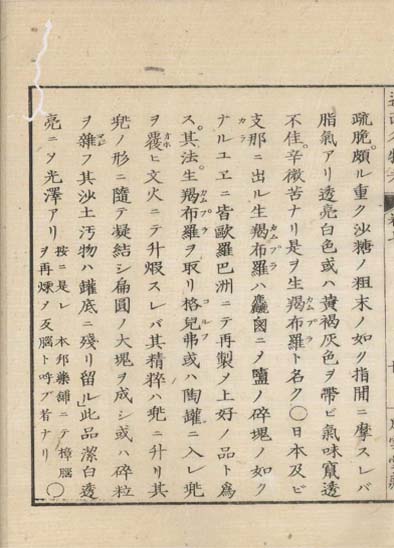 疏脆頗ル重ク沙糖ノ粗末ノ如ク指間ニ摩スレバ
脂氣アリ透亮白色或ハ黄褐灰色ヲ帶ビ氣味竄透
不佳辛微苦ナリ是ヲ生羯布羅ト名ク〇日本及ビ
支那ニ出ル生羯布羅ハ麤鹵ニメ鹽ノ碎塊ノ如ク
ナルユヱニ皆歐羅巴洲ニテ再製メ上好ノ品ト爲
ス。其法。生羯布羅ヲ取リ格兒弗或ハ陶罐ニ入レ兜
ヲ覆ヒ文火ニテ升煆スレバ其精粹ハ兜ニ升リ其
兜ノ形ニ隨テ凝結シ扁圓ノ大塊ヲ成シ或ハ碎粒
ヲ雜フ其沙土汚物ハ罐底ニ殘リ留ル」此品潔白透
亮ニメ光澤アリ
按ニ是レ本邦藥鋪ニテ樟腦
ヲ再煉メ反腦ト呼ブ者ナリ〇